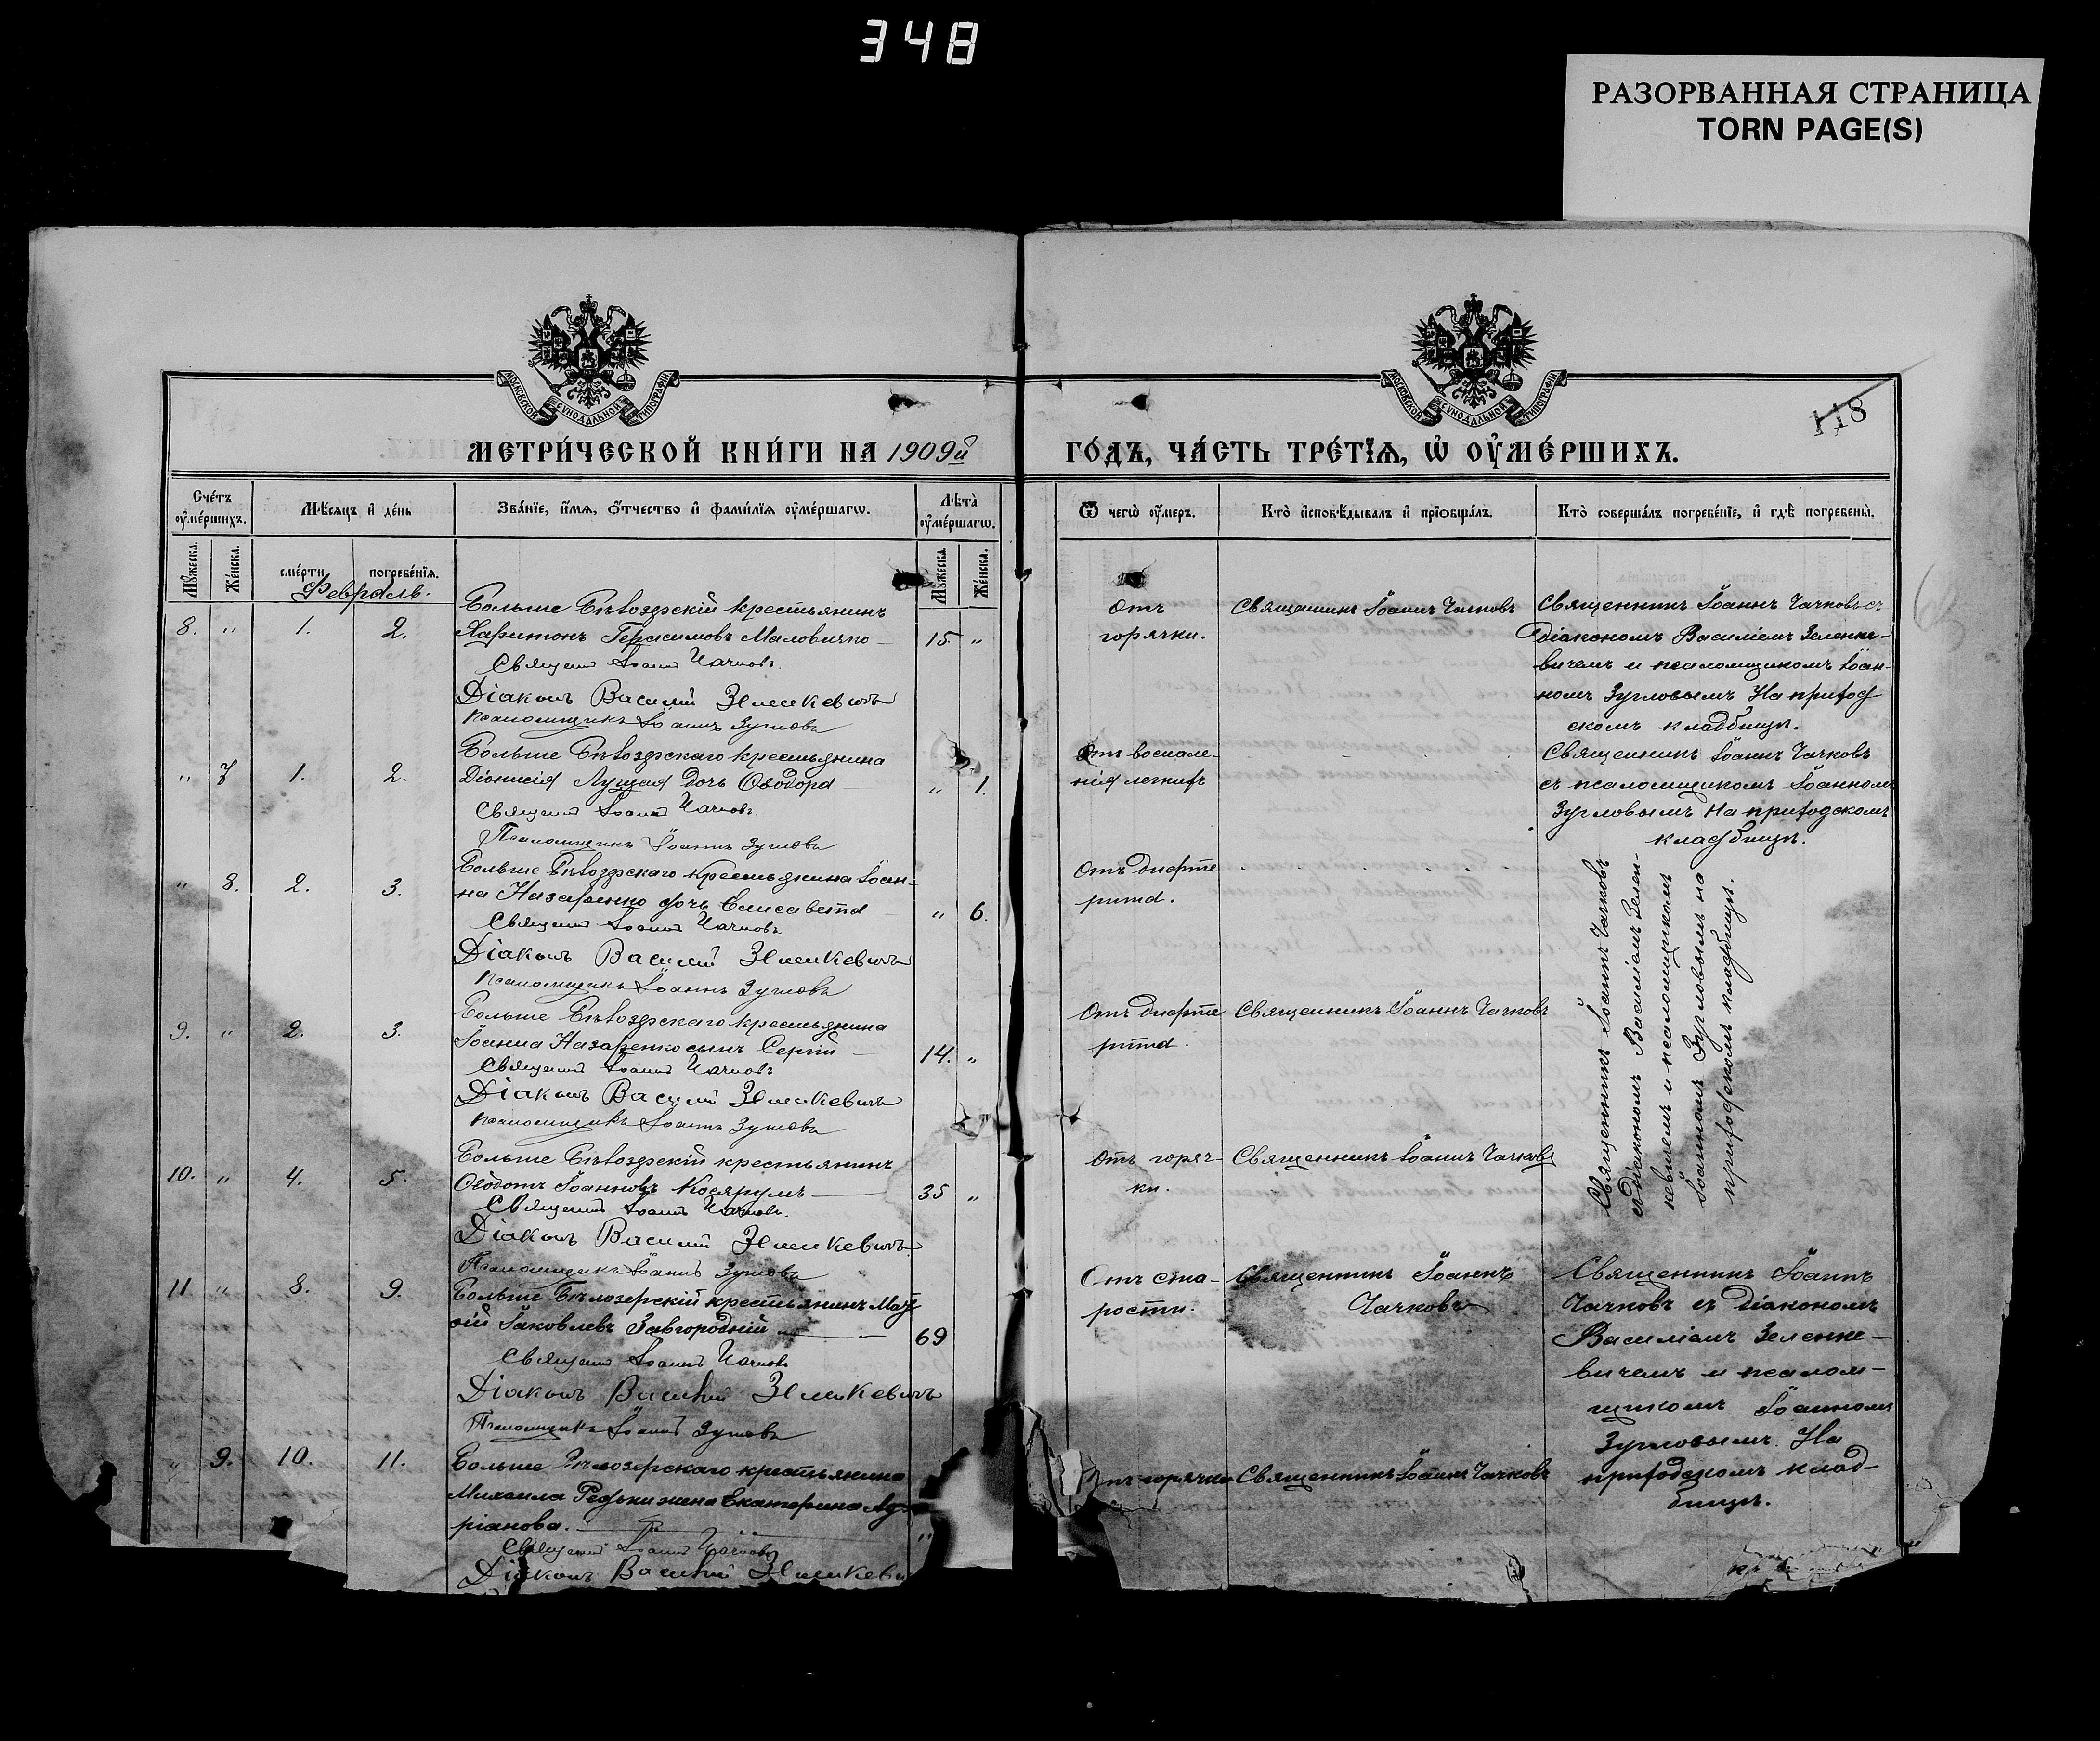 348
РАЗОРВАННАЯ СТРАНИЦА
TORN PAGE(S)
МОСКОВСКОЙ СѴНОДАЛЬНОЙ ТИПОГРАФІИ
МОСКОВСКОЙ СѴНОДАЛЬНОЙ ТИПОГРАФІИ
118
МЕТРИ́ЧЕСКОЙ КНИ́ГИ НА 1909й ГО́ДЪ, ЧА́СТЬ ТРЕ́ТЇѦ, Ѡ҆ ОУ҆МЕ́РШИХЪ.
Сче́тъ оу҆ме́ршихъ.
Мѣ́сяцъ и҆ де́нь
Зва́нїе, и҆́мѧ, ѻ҆́тчество и҆ фами́лїѧ оу҆ме́ршагѡ.
Лѣ́та оу҆ме́ршагѡ.
Ѿ чегѡ̀ оу҆́меръ.
Кто̀ и҆сповѣ́дывалъ и҆ прїѡбща́лъ.
Кто̀ соверша́лъ погребе́нїе, и҆ гдѣ̀ погребены̀.
Мꙋ́жеска.
Же́нска.
сме́рти
погребе́нїѧ.
Мꙋ́жеска.
Же́нска.
Февраль.
8. " 1. 2.
Больше Бѣлозерскій крестьянинъ
Харитонъ Герасимовъ Маловичко
15 "
Священ Іоаннъ Чачковъ
Діаконъ Василій Зеленкевичъ
Псаломщикъ Іоаннъ Зугловъ
Отъ
горячки.
Священникъ Іоаннъ Чачковъ
Священникъ Іоаннъ Чачковъ съ
діакономъ Василіемъ Зеленке-
вичемъ и псаломщикомъ Іоан-
номъ Зугловымъ На приход-
скомъ кладбищѣ.
" 7 1. 2.
Больше Бѣлозерскаго крестьянина
Діонисія Луцая дочь Ѳеодора
" 1.
Священ Іоаннъ Чачковъ
Псаломщикъ Іоаннъ Зугловъ
Отъ воспале-
нія легкихъ
Священникъ Іоаннъ Чачковъ
съ псаломщикомъ Іоанномъ
Зугловымъ На приходскомъ
кладбищѣ.
" 8. 2. 3.
Больше Бѣлозерскаго крестьянина Іоан-
на Назаренко дочь Елисавета
" 6.
Священ Іоаннъ Чачковъ
Діаконъ Василій Зеленкевичъ
Псаломщикъ Іоаннъ Зугловъ
Отъ дифте
рита.
Священникъ Іоаннъ Чачковъ
съ діакономъ Василіемъ Зелен-
кевичемъ и псаломщикомъ
Іоанномъ Зугловымъ на
приходскомъ кладбищѣ.
9. " 2. 3.
Больше Бѣлозерскаго крестьянина
Іоанна Назаренко сынъ Сергій
14. "
Священ Іоаннъ Чачковъ
Діаконъ Василій Зеленкевичъ
Псаломщикъ Іоаннъ Зугловъ
Отъ дифте
рита.
Священникъ Іоаннъ Чачковъ
10. " 4. 5.
Больше Бѣлозерскій крестьянинъ
Ѳеодотъ Іоанновъ Косярумъ
35 "
Священ Іоаннъ Чачковъ
Діаконъ Василій Зеленкевичъ
Псаломщикъ Іоаннъ Зугловъ
Отъ горяч-
ки.
Священникъ Іоаннъ Чачковъ
11 " 8. 9.
Больше Бѣлозерскій крестьянинъ Мат
ѳій Іаковлевъ Завгородній
69
Священ Іоаннъ Чачковъ
Діаконъ Василій Зеленкевичъ
Псаломщикъ Іоаннъ Зугловъ
Отъ ста-
рости.
Священникъ Іоаннъ
Чачковъ
Священникъ Іоаннъ
Чачковъ съ діакономъ
Василіемъ Зеленке-
вичемъ и псалом-
щикомъ Іоанномъ
Зугловымъ. На
приходскомъ клад-
бищѣ.
" 9. 10. 11.
Больше Бѣлозерскаго крестьянина
Михаила Редьки жена Екатерина Ад
ріанова.
"
Священ Іоаннъ Чачковъ
Діаконъ Василій Зеленкеви
Отъ горячки
Священникъ Іоаннъ Чачковъ